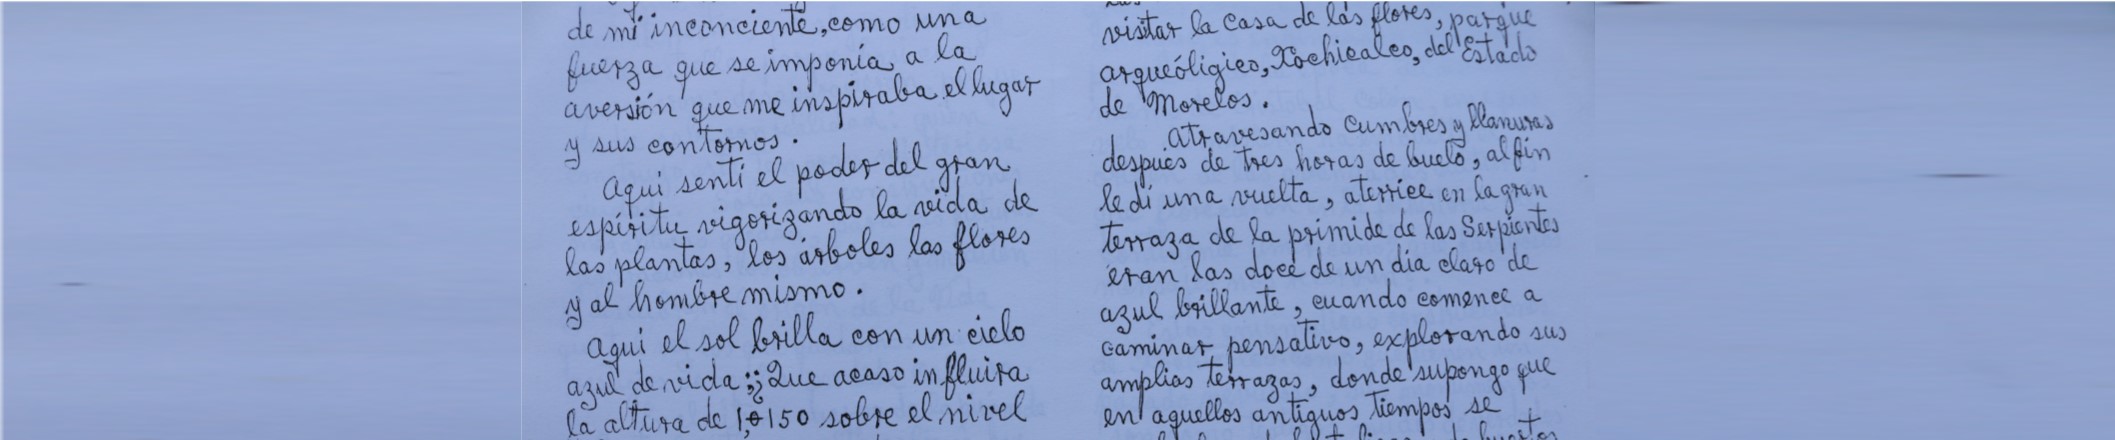 de mi inconciente, como una
fuerza que se imponía a la
aversión que me inspiraba el lugar
y sus contornos.
Aqui sentí el poder del gran
espíritu vigorizando la vida de
las plantas, los árboles las flores
y al hombre mismo.
Aqui el sol brilla con un cielo
azul de vida ;¿Que acaso influira
la altura de 150 sobre el nivel
visitar la casa de las flores, parque
arqueóligico, Xochicalco, del Estado
de Morelos.
Atravesando cumbres y llanuras
después de tres horas de buelo, al fin
le dí una vuelta, aterrice en la gran
terraza de la primide de las Serpientes
eran las doce de un día claro de
azul brillante, cuando comence a
caminar pensativo, explorando sus
amplias terrazas, donde supongo que
en aquellos antiguos tiempos se